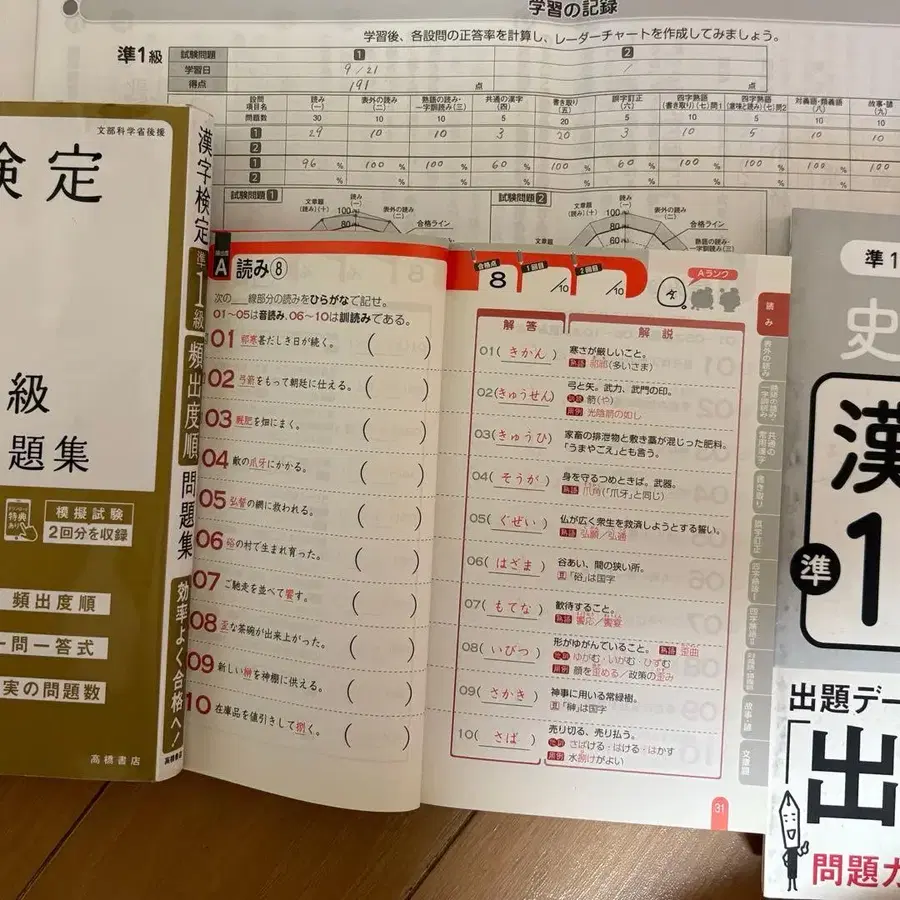 学習の記録
学習後、各設問の正答率を計算し、レーダーチャートを作成してみましょう。
準1級
試験問題 1 2
学習日 9/21 /
得点 191 点 点
設問項目名 読み(一) 表外の読み(二) 熟語の読み・一字訓読み(三) 共通の漢字(四) 書き取り(五) 誤字訂正(六) 四字熟語(書き取り)(七)問1 四字熟語(意味と読み)(七)問2 対義語・類義語(八) 故事・諺(九)
問題数 30 10 10 5 20 5 10 5 10 10
1 29 10 10 3 20 3 10 5 10 10
2
1 96% 100% 100% 60% 100% 60% 100% 100% 100% 100
2 % % % % % % % % %
試験問題 1
文章題(読み)(十)
読み(一)
表外の読み(二)
100%
80
合格ライン
試験問題 2
文章題(読み)(十)
読み(一)
表外の読み(二)
100%
80
合格ライン
熟語の読み・一字訓読み(三)
文部科学省後援
検定
級
題集
模擬試験
2回分を収録
頻出度順
一問一答式
実の問題数
高橋書店
漢字検定準1級頻出度順問題集
効率よく合格へ!
高橋書店
頻出度
A 読み⑧
次の___線部分の読みをひらがなで記せ。
01〜05は音読み、06〜10は訓読みである。
01 祁寒甚だしき日が続く。( )
02 弓箭をもって朝廷に仕える。( )
03 厩肥を畑にまく。( )
04 敵の爪牙にかかる。( )
05 弘誓の網に救われる。( )
06 硲の村で生まれ育った。( )
07 ご馳走を並べて饗す。( )
08 歪な茶碗が出来上がった。( )
09 新しい榊を神棚に供える。( )
10 在庫品を値引きして捌く。( )
合格点
8
1回目
/10
2回目
/10
Aランク
解答 解説
01(きかん) 寒さが厳しいこと。
熟語 祁祁(多いさま)
02(きゅうせん) 弓と矢。武力、武門の印。
訓読 箭(や)
用例 光陰箭の如し
03(きゅうひ) 家畜の排泄物と敷き藁が混じった肥料。
「うまやごえ」とも言う。
04(そうが) 身を守るつめときば。武器。
熟語 爪角(「爪牙」と同じ)
05(ぐぜい) 仏が広く衆生を救済しようとする誓い。
熟語 弘願/弘通
06(はざま) 谷あい、間の狭い所。
「硲」は国字
07(もてな) 歓待すること。
熟語 饗応/饗宴
08(いびつ) 形がゆがんでいること。 熟語 歪曲
ゆがむ・いがむ・ひずむ
用例 顔を歪める/政策の歪み
09(さかき) 神事に用いる常緑樹。
「榊」は国字
10(さば) 売り切る、売り払う。
さばける・はける・はかす
用例 水捌けがよい
31
読み
表外の読み
熟語の読み・一字訓読み
共通の漢字
書き取り
誤字訂正
四字熟語
故事・諺
文章題
準1
史
漢
準
1
出題デー
出
問題カ